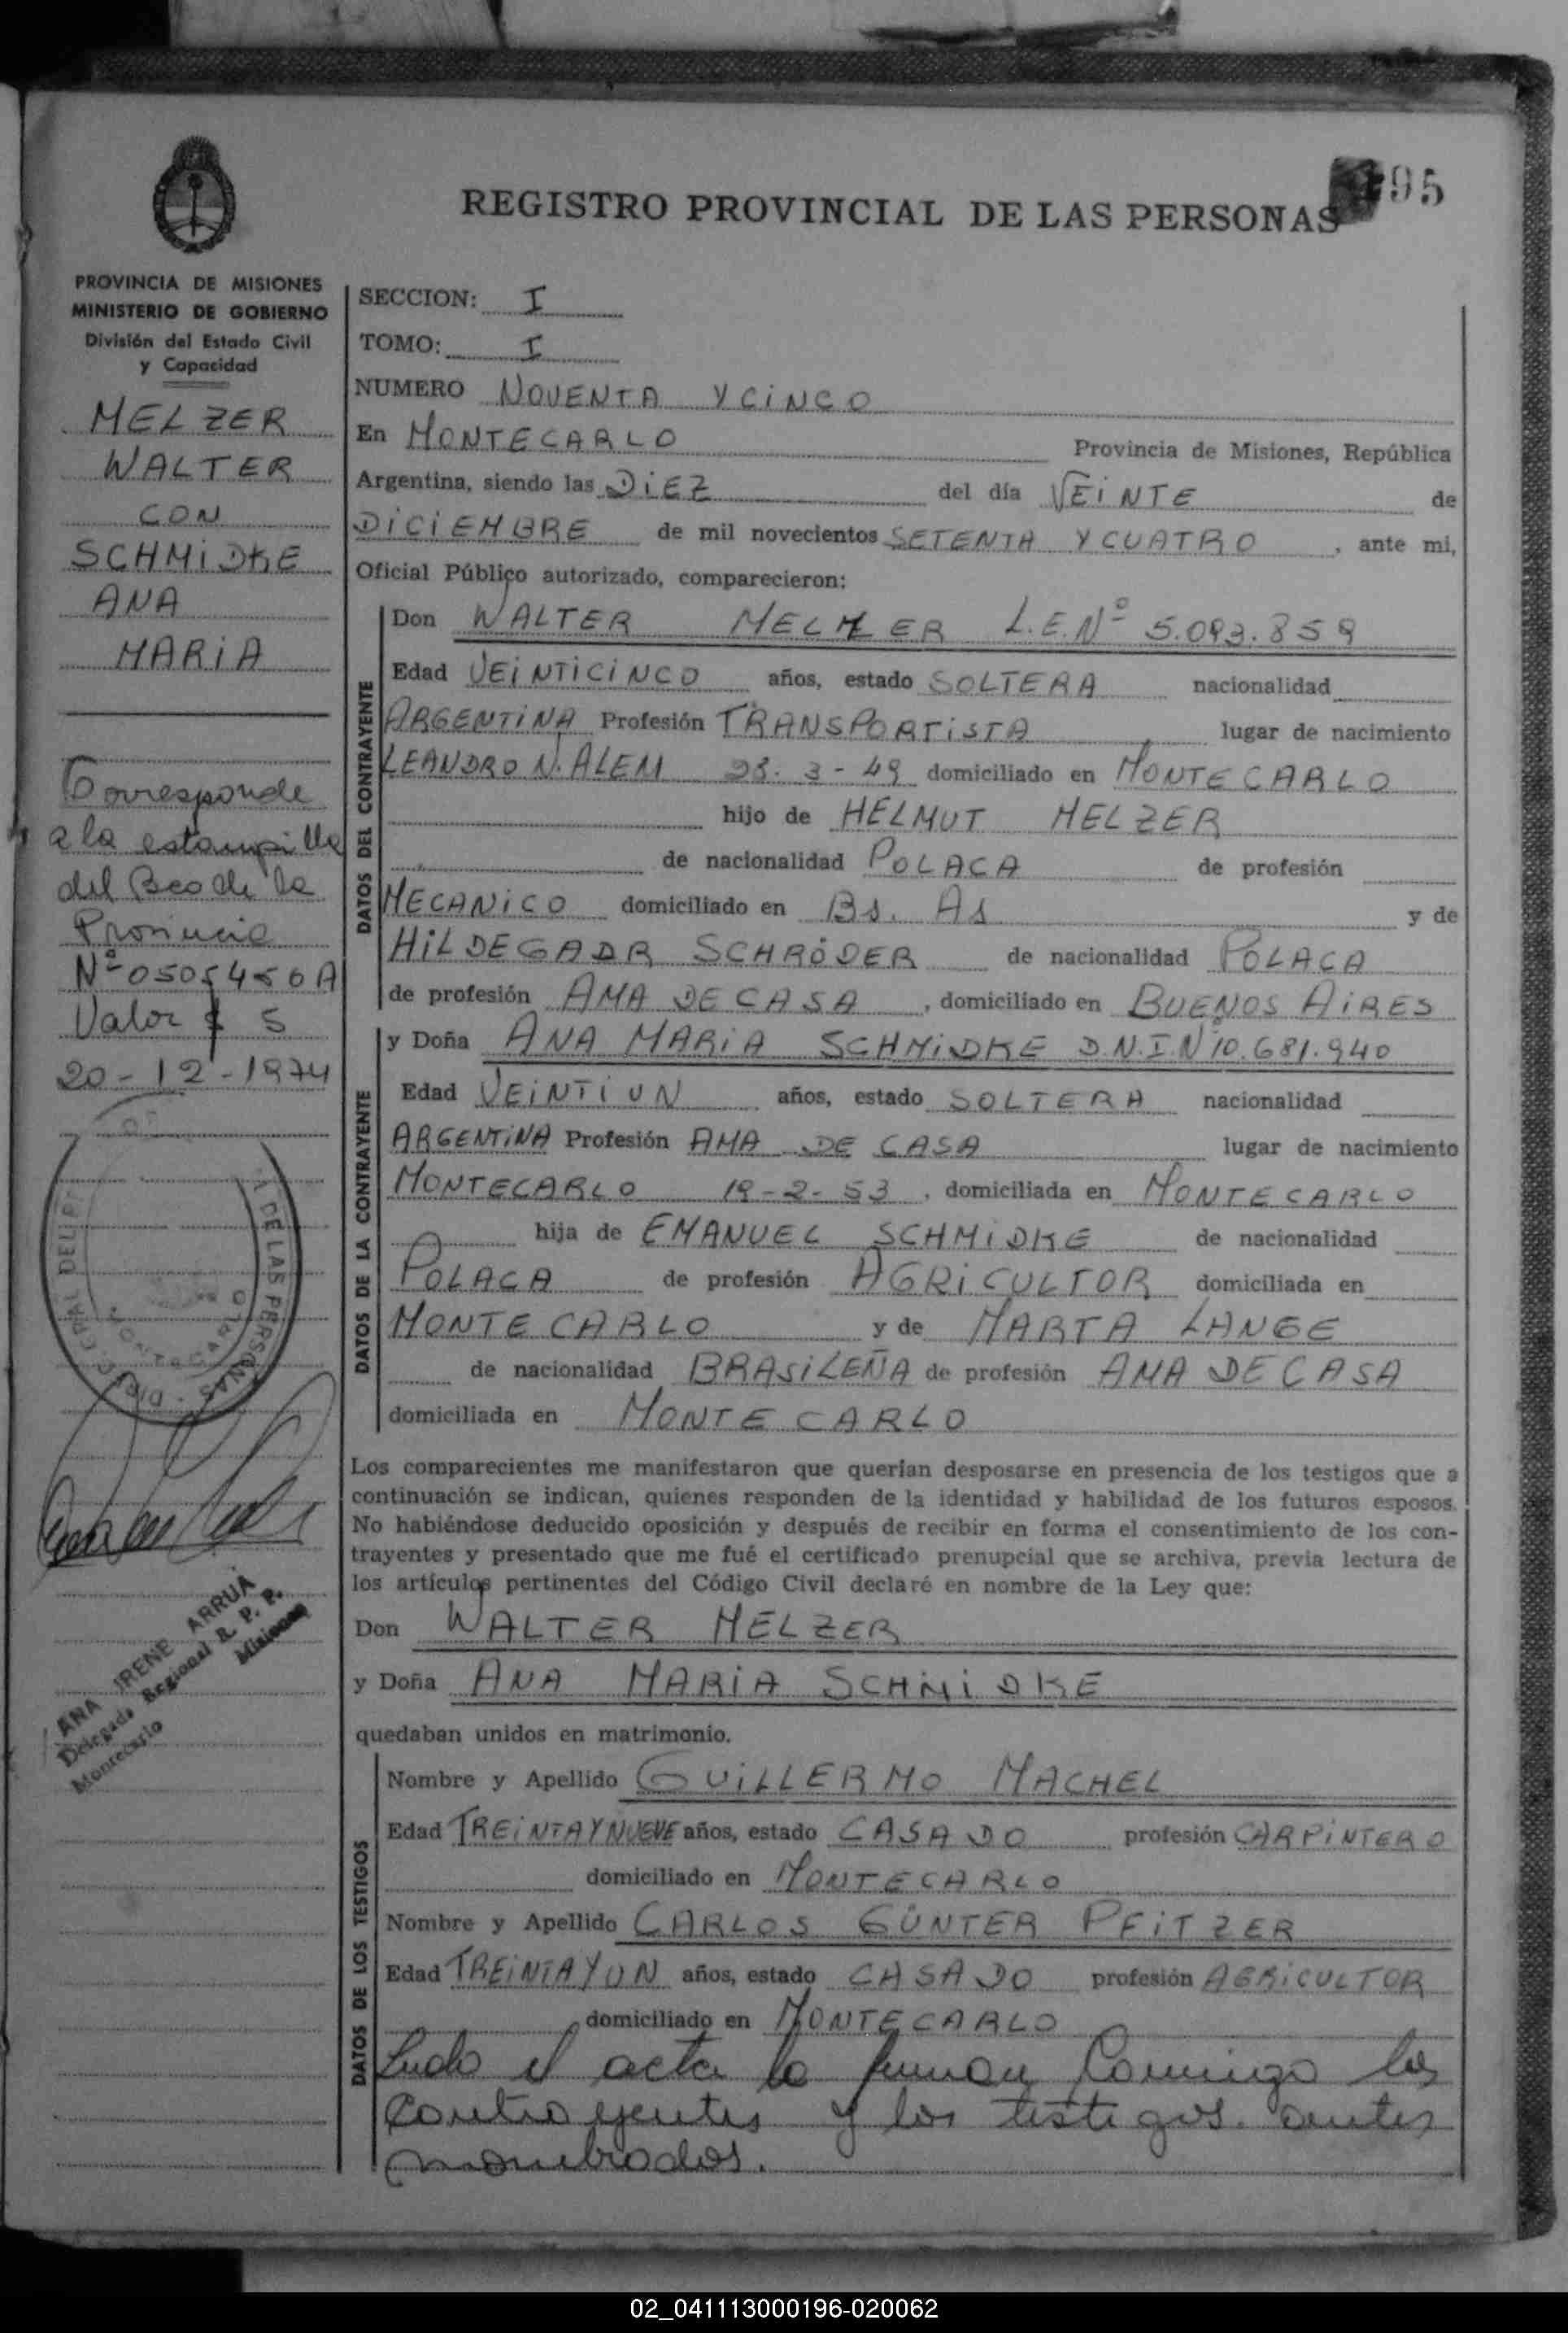 95
REGISTRO PROVINCIAL DE LAS PERSONAS
PROVINCIA DE MISIONES
MINISTERIO DE GOBIERNO
División del Estado Civil
y Capacidad
MELZER
WALTER
CON
SCHMIDKE
ANA
MARIA
Corresponde
a la estampilla
del Bco de la
Provincia
Nº 0505456A
Valor $ 5
20-12-1974
DE LAS PERSONAS
MONTECARLO
ANA IRENE ARRUA
Delegada Regional R. P. P.
Montecarlo Misiones
SECCION: I
TOMO: I
NUMERO NOVENTA Y CINCO
En MONTECARLO Provincia de Misiones, República
Argentina, siendo las DIEZ del día VEINTE de
DICIEMBRE de mil novecientos SETENTA Y CUATRO, ante mi,
Oficial Público autorizado, comparecieron:
DATOS DEL CONTRAYENTE
Don WALTER MELZER L.E.Nº 5.093.859
Edad VEINTICINCO años, estado SOLTERA nacionalidad
ARGENTINA Profesión TRANSPORTISTA lugar de nacimiento
LEANDRO N. ALEM 28-3-49 domiciliado en MONTECARLO
hijo de HELMUT MELZER
de nacionalidad POLACA de profesión
MECANICO domiciliado en Bs. As y de
HILDEGADR SCHRÖDER de nacionalidad POLACA
de profesión AMA DE CASA, domiciliado en BUENOS AIRES
DATOS DE LA CONTRAYENTE
y Doña ANA MARIA SCHMIDKE D.N.I.Nº 10.681.940
Edad VEINTIUN años, estado SOLTERA nacionalidad
ARGENTINA Profesión AMA DE CASA lugar de nacimiento
MONTECARLO 19-2-53, domiciliada en MONTECARLO
hija de EMANUEL SCHMIDKE de nacionalidad
POLACA de profesión AGRICULTOR domiciliada en
MONTECARLO y de MARTA LANGE
de nacionalidad BRASILEÑA de profesión AMA DE CASA
domiciliada en MONTECARLO
Los comparecientes me manifestaron que querían desposarse en presencia de los testigos que a
continuación se indican, quienes responden de la identidad y habilidad de los futuros esposos.
No habiéndose deducido oposición y después de recibir en forma el consentimiento de los con-
trayentes y presentado que me fué el certificado prenupcial que se archiva, previa lectura de
los artículos pertinentes del Código Civil declaré en nombre de la Ley que:
Don WALTER MELZER
y Doña ANA MARIA SCHMIDKE
quedaban unidos en matrimonio.
DATOS DE LOS TESTIGOS
Nombre y Apellido GUILLERMO MACHEL
Edad TREINTA Y NUEVE años, estado CASADO profesión CARPINTERO
domiciliado en MONTECARLO
Nombre y Apellido CARLOS GÜNTER PFITZER
Edad TREINTA Y UN años, estado CASADO profesión AGRICULTOR
domiciliado en MONTECARLO
Leido el acta la firman Conmigo los
Contrayentes y los testigos antes
nombrados.
02_041113000196-020062